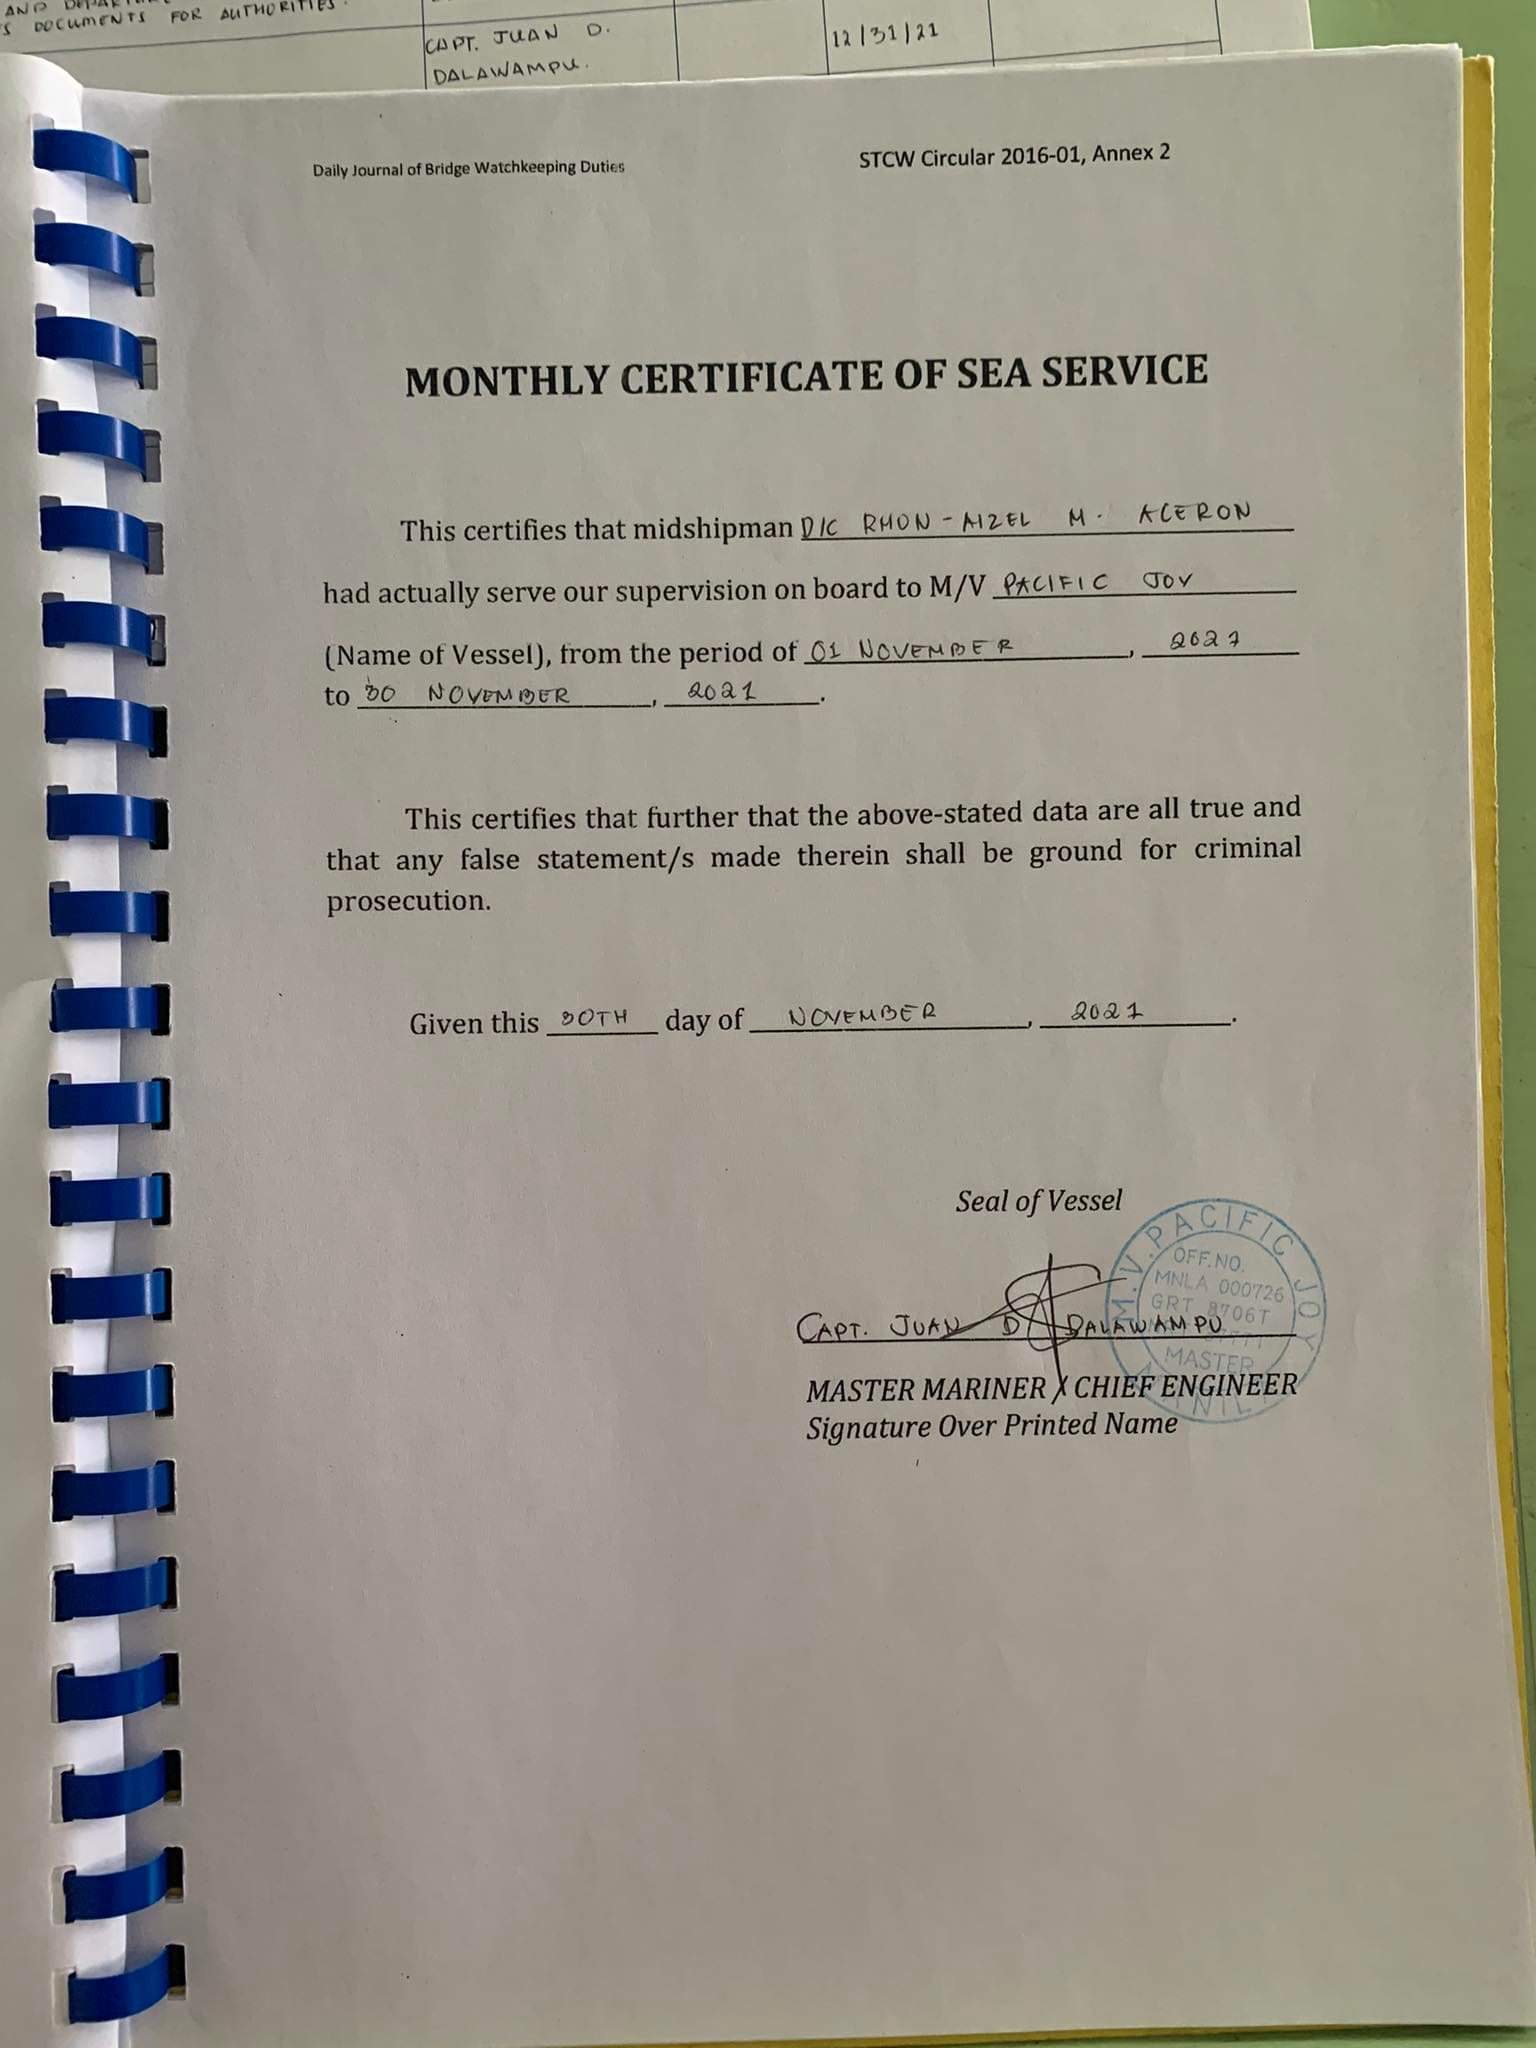 AND
S DOCUMENTS FOR AUTHORITIES.
CAPT. JUAN D.
DALAWAMPU.
12/31/21
Daily Journal of Bridge Watchkeeping Duties
STCW Circular 2016-01, Annex 2
MONTHLY CERTIFICATE OF SEA SERVICE
This certifies that midshipman D/C RHON-AIZEL M. ACERON
had actually serve our supervision on board to M/V PACIFIC JOY
(Name of Vessel), from the period of 01 NOVEMBER, 2021
to 30 NOVEMBER, 2021.
This certifies that further that the above-stated data are all true and
that any false statement/s made therein shall be ground for criminal
prosecution.
Given this 30TH day of NOVEMBER, 2021.
Seal of Vessel
M.V. PACIFIC JOY
OFF. NO.
MNLA 000726
GRT 8706T
MASTER
CAPT. JUAN D. DALAWAMPU
MASTER MARINER / CHIEF ENGINEER
Signature Over Printed Name